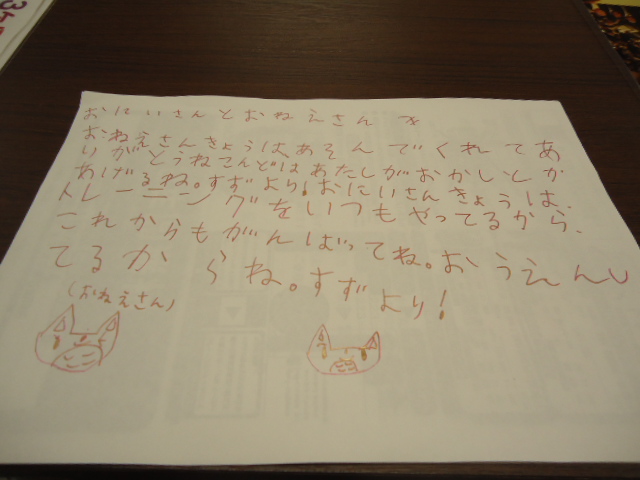 おにいさんとおねえさん を
おねえさんきょうはあそんでくれてあ
りがとうねこんどはあたしがおかしとか
あげるね。すずより!おにいさんきょうは、
トレーニングをいつもやってるから、
これからもがんばってね。おうえんし
てるからね。すずより!
(おねえさん)